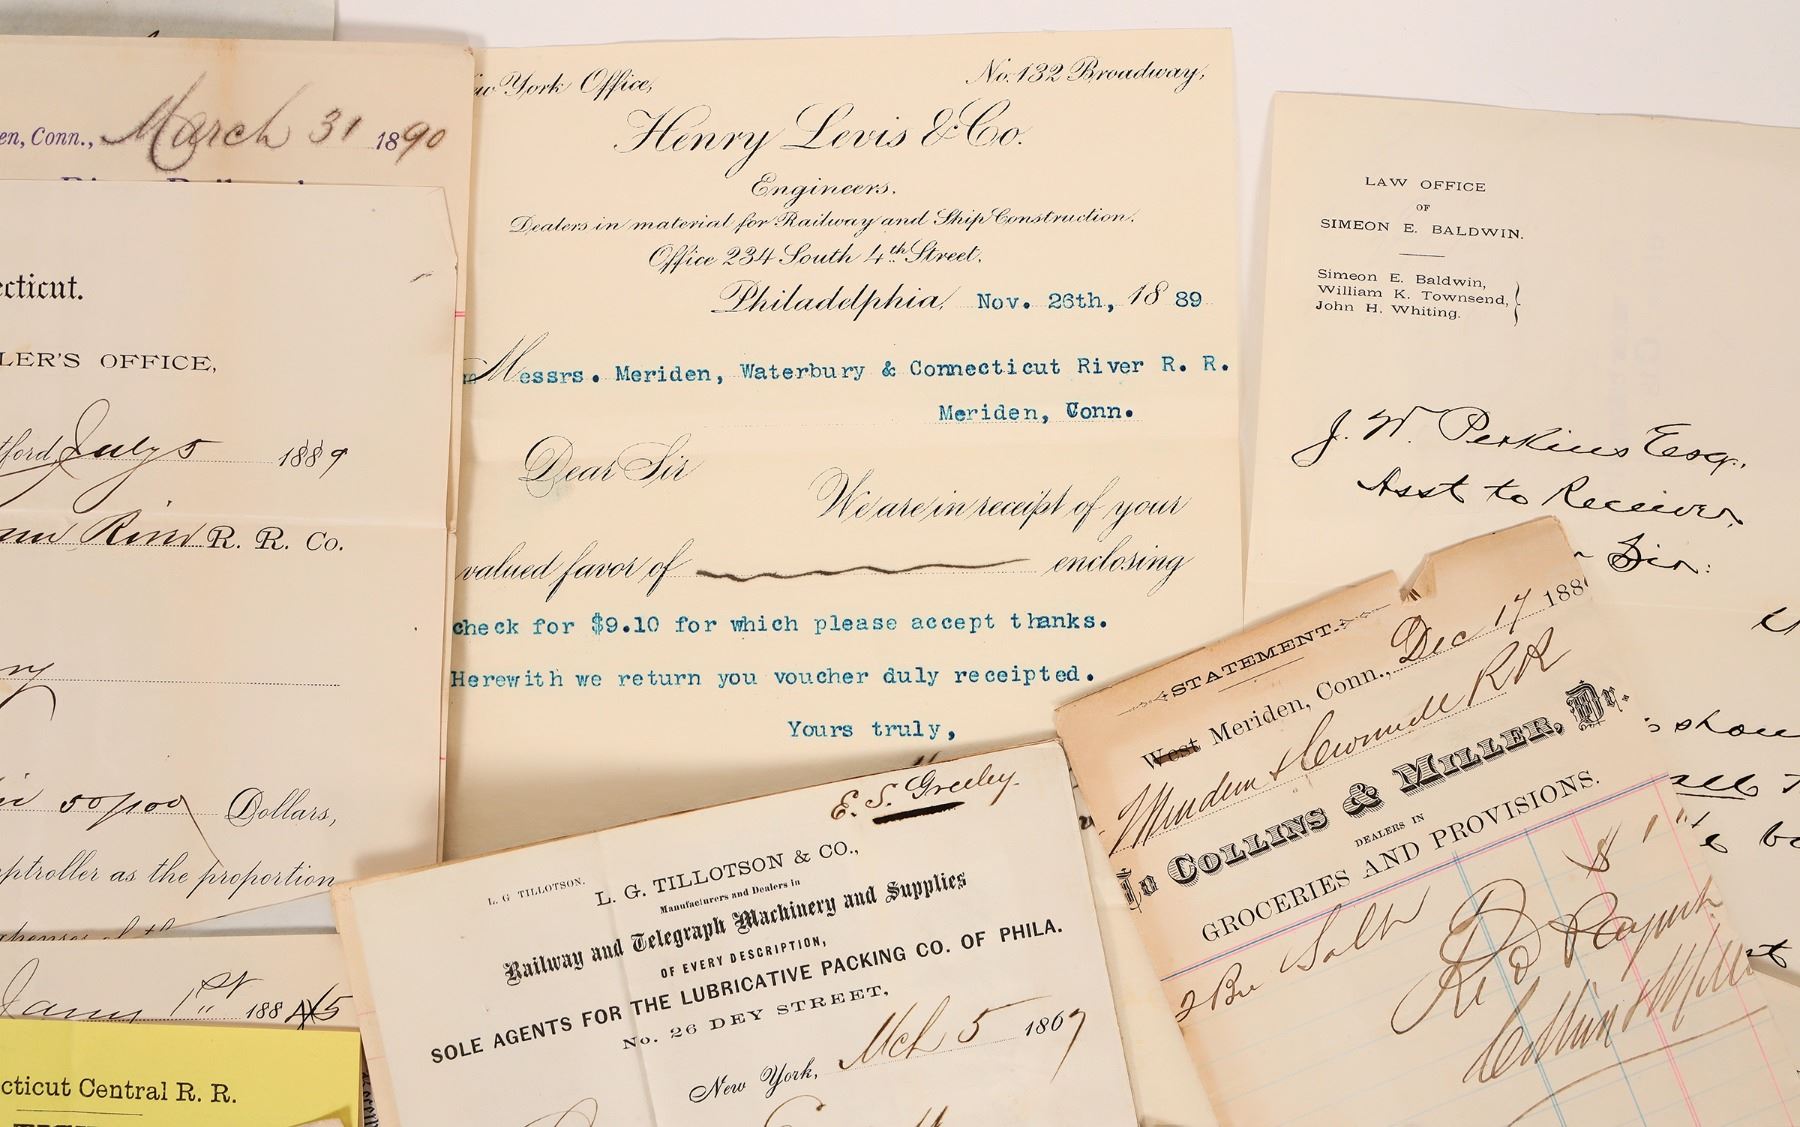 en, Conn., March 31 1890
ecticut.
LER'S OFFICE,
tford, July 5 1889
R. R. Co.
50/100 Dollars,
ptroller as the proportion
1st 188
cticut Central R. R.
ew York Office, No. 132 Broadway,
Henry Levis & Co.
Engineers.
Dealers in material for Railway and Ship Construction.
Office 234 South 4th Street.
Philadelphia, Nov. 26th, 1889
Messrs. Meriden, Waterbury & Connecticut River R. R.
Meriden, Conn.
Dear Sir
We are in receipt of your
valued favor of enclosing
check for $9.10 for which please accept thanks.
Herewith we return you voucher duly receipted.
Yours truly,
LAW OFFICE
OF
SIMEON E. BALDWIN.
Simeon E. Baldwin,
William K. Townsend,
John H. Whiting.
J. W. Perkins Esq.
Asst to Receiver.
Sir:
E. S. Greeley.
L. G TILLOTSON.
L. G. TILLOTSON & CO.,
Manufacturers and Dealers in
Railway and Telegraph Machinery and Supplies
OF EVERY DESCRIPTION,
SOLE AGENTS FOR THE LUBRICATIVE PACKING CO. OF PHILA.
No. 26 DEY STREET,
New York, Mch 5 1867
STATEMENT.
West Meriden, Conn., Dec 17 188
Meriden & Cromwell RR
To COLLINS & MILLER, Dr.
DEALERS IN
GROCERIES AND PROVISIONS.
2 Bu Salt $1
Rec'd Payment
Collins & Miller